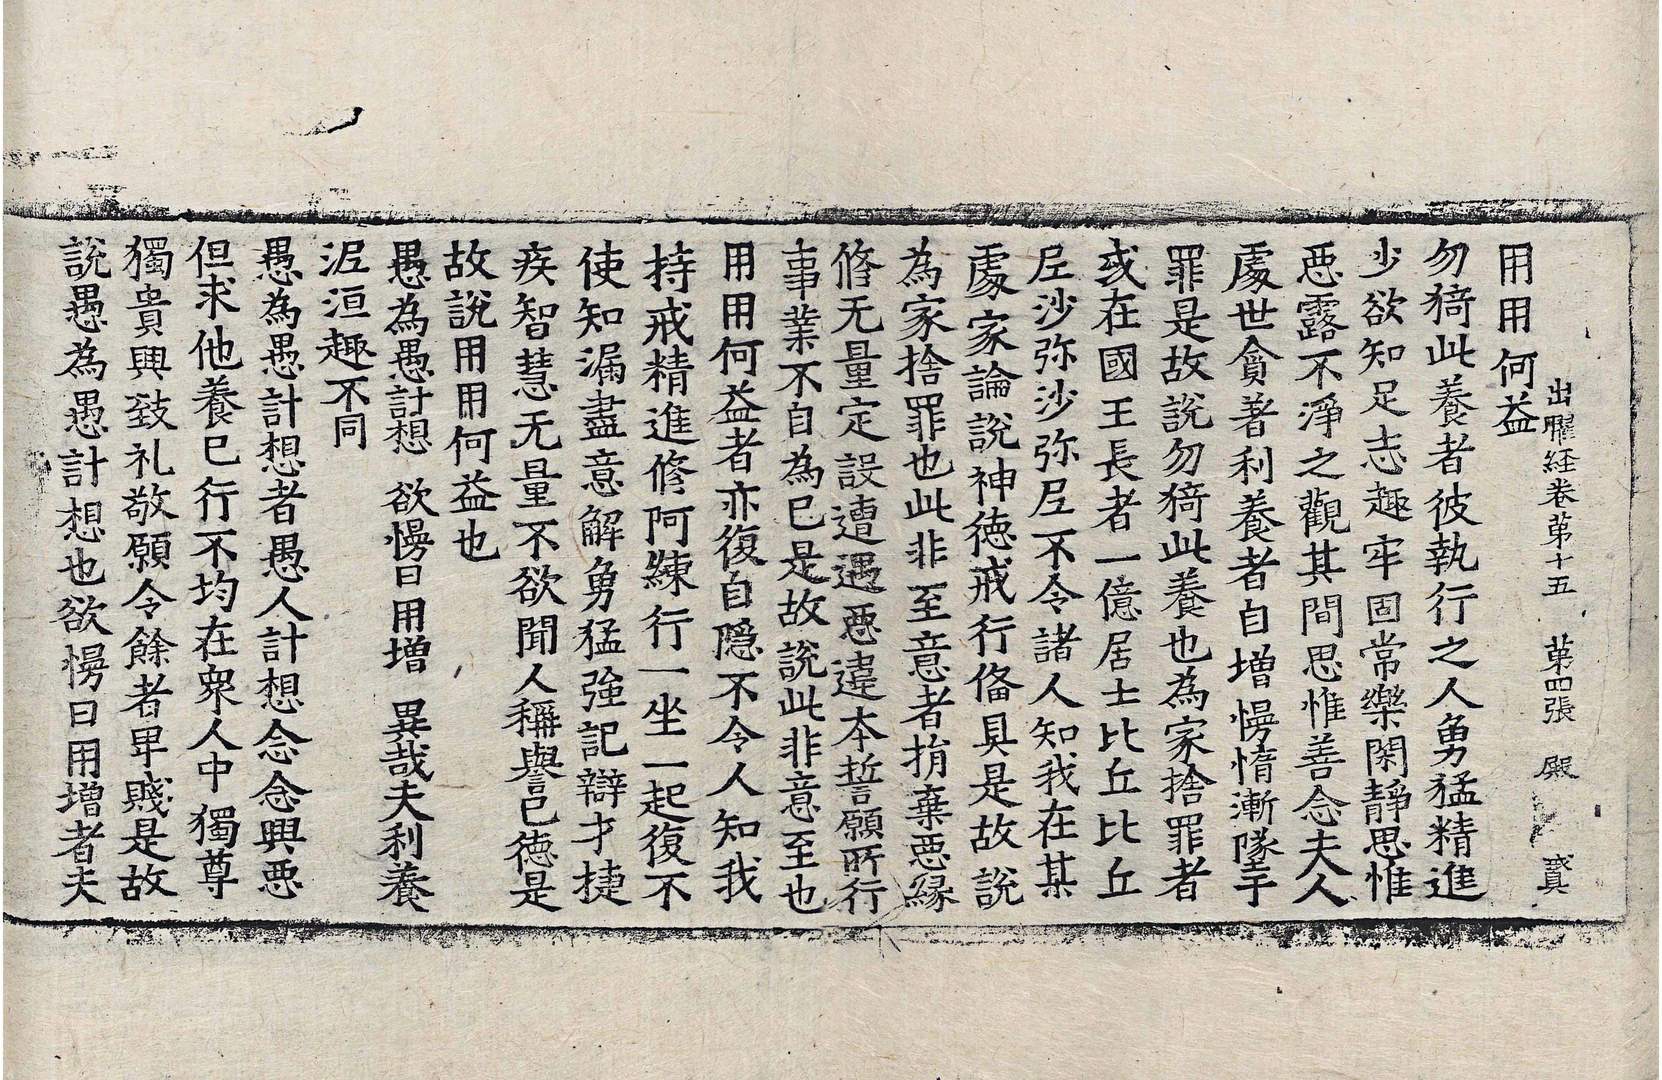 出曜経卷第十五　第四張　殿
用用何益
勿猗此養者彼執行之人勇猛精進
少欲知足志趣牢固常樂閑靜思惟
惡露不淨之觀其間思惟善念夫人
處世貪著利養者自增慢惰漸墜于
罪是故說勿猗此養也為家捨罪者
或在國王長者一億居士比丘比丘
尼沙弥沙弥尼不令諸人知我在某
處家論說神德戒行俻具是故說
為家捨罪也此非至意者捐棄惡縁
修无量定設遭遇惡違本誓願所行
事業不自為已是故說此非意至也
用用何益者亦復自隱不令人知我
持戒精進修阿練行一坐一起復不
使知漏盡意解勇猛強記辯才捷
疾智慧无量不欲聞人稱譽已德是
故說用用何益也
愚為愚計想　欲慢日用增　異哉夫利養
泥洹趣不同
愚為愚計想者愚人計想念念興惡
但求他養已行不均在衆人中獨尊
獨貴興致礼敬願令餘者卑賤是故
說愚為愚計想也欲慢日用增者夫